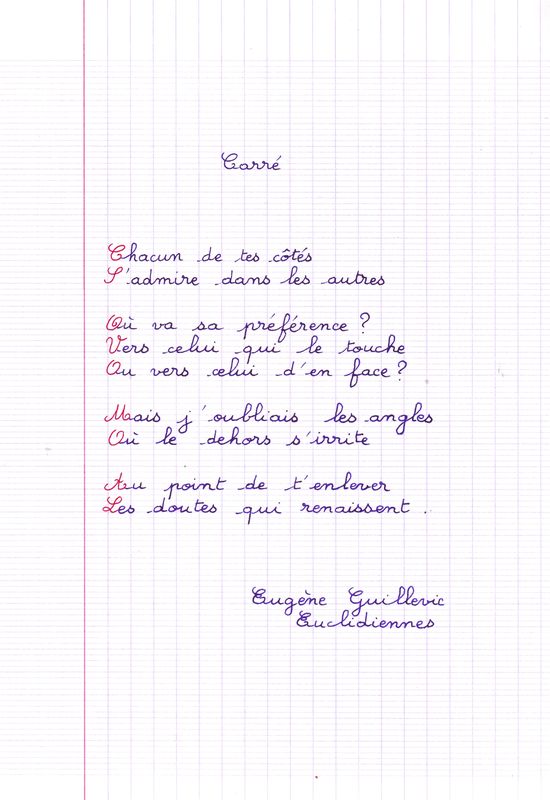 Carré
Chacun de tes côtés
S'admire dans les autres
Où va sa préférence ?
Vers celui qui le touche
Ou vers celui d'en face ?
Mais j'oubliais les angles
Où le dehors s'irrite
Au point de t'enlever
Les doutes qui renaissent .
Eugène Guillevic
Euclidiennes